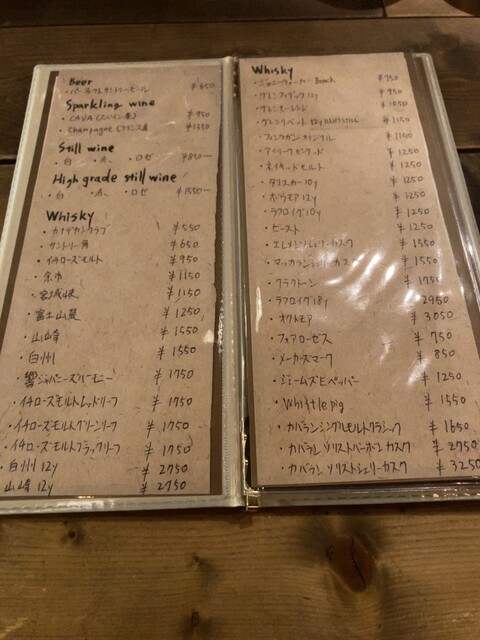 Beer
・パーフェクトサントリービール ¥650
Sparkling wine
・CAVA(スペイン産) ¥950
・Champagne(フランス産) ¥1350
Still wine
・白 ・赤 ・ロゼ ¥850〜
High grade still wine
・白 ・赤 ・ロゼ ¥1550〜
Whisky
・カナディアンクラブ ¥550
・サントリー角 ¥650
・イチローズモルト ¥950
・余市 ¥1150
・宮城峡 ¥1150
・富士山麓 ¥1250
・山崎 ¥1550
・白州 ¥1550
・響ジャパニーズハーモニー ¥1750
・イチローズモルトレッドリーフ ¥1750
・イチローズモルトグリーンリーフ ¥1750
・イチローズモルトブラックリーフ ¥1750
・白州 12y ¥2750
山崎 12y ¥2750
Whisky
・ジョニーウォーカー Black ¥750
・グレンフィディック 12y ¥950
・グレンモーレンジ ¥1050
・グレンリベット 12y ¥1150
・フィンラガン ¥1100
・アイリーク ¥1250
・ネイキッドモルト ¥1250
・タリスカー 10y ¥1250
・ボウモア 12y ¥1250
・ラフロイグ 10y ¥1250
・ビースト ¥1250
・エレメンツシェリーカスク ¥1550
・マッカランシェリーカスク ¥1550
・クラクトーン ¥1750
・ラフロイグ 18y ¥2950
・オクトモア ¥3050
・フォアローゼス ¥750
・メーカーズマーク ¥850
・ジェームズEペッパー ¥1250
・Whistle pig ¥1550
・カバランシングルモルトクラシック ¥1650
・カバラン ソリストバーボンカスク ¥2750
・カバラン ソリストシェリーカスク ¥3250